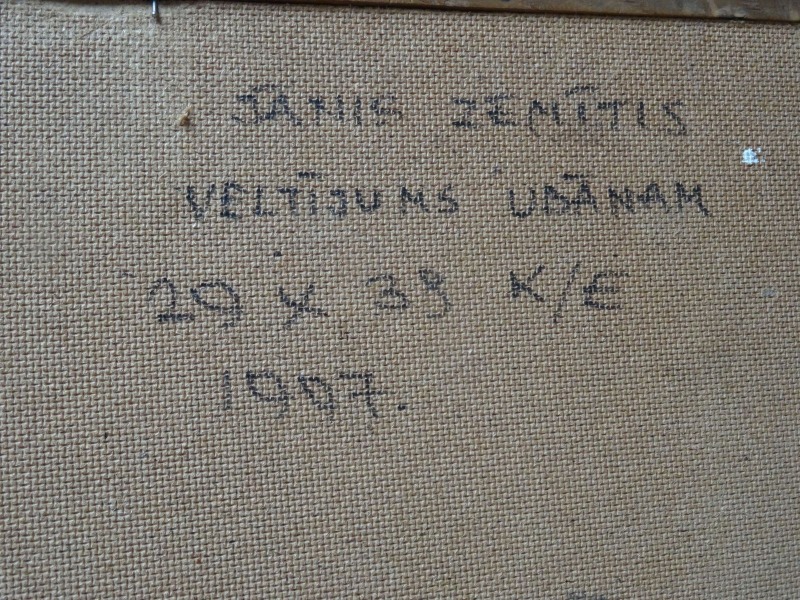 JĀNIS ZEMĪTIS
VELTĪJUMS UBĀNAM
29 X 39 K/E
1997.